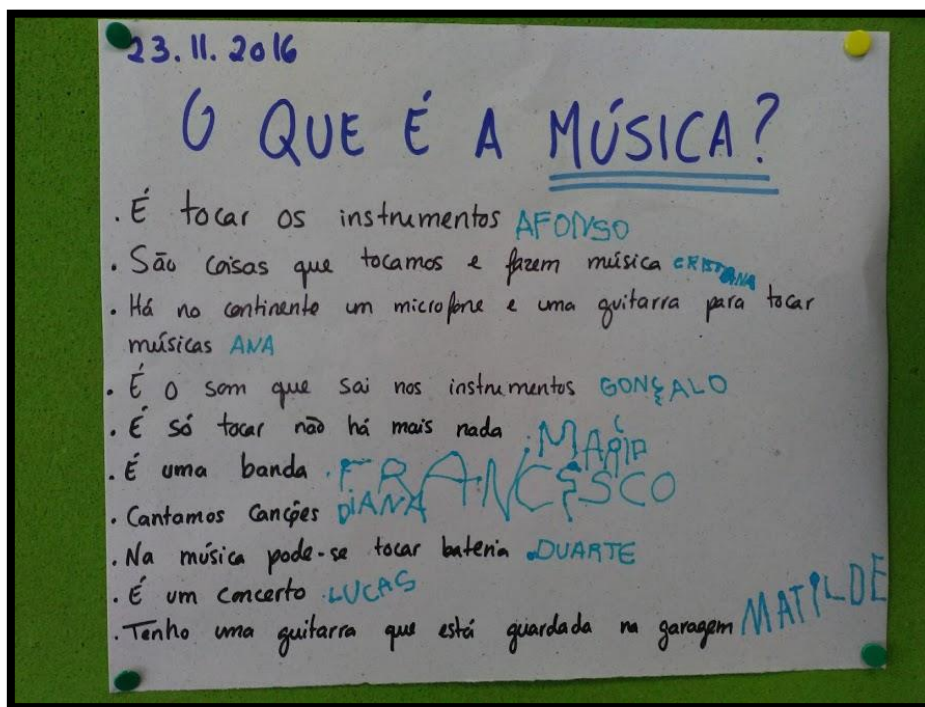 23.11.2016
O QUE É A MÚSICA?
. É tocar os instrumentos AFONSO
. São coisas que tocamos e fazem música CRISTIANA
. Há no continente um microfone e uma guitarra para tocar
músicas ANA
. É o som que sai nos instrumentos GONÇALO
. É só tocar não há mais nada . MARIA
. É uma banda . FRANCESCO
. Cantamos canções DIANA
. Na música pode-se tocar bateria . DUARTE
. É um concerto . LUCAS
. Tenho uma guitarra que está guardada na garagem MATILDE